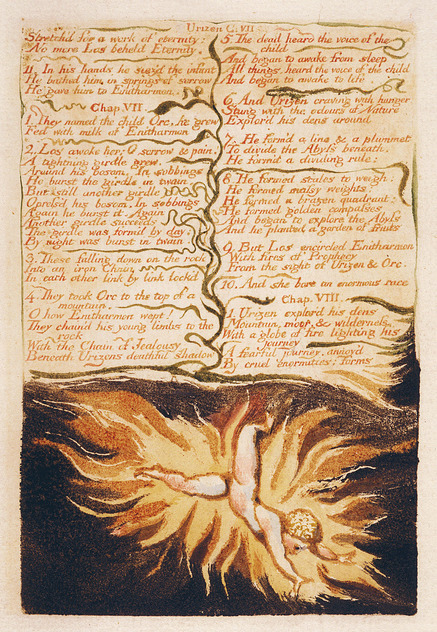 Urizen C. VII
Stretch'd for a work of eternity;
No more Los beheld Eternity.
11. In his hands he siez'd the infant
He bathed him in springs of sorrow
He gave him to Enitharmon.
Chap. VII.
1. They named the child Orc, he grew
Fed with milk of Enitharmon
2. Los awoke her; O sorrow & pain!
A tight'ning girdle grew,
Around his bosom. In sobbings
He burst the girdle in twain,
But still another girdle
Opressd his bosom, In sobbings
Again he burst it. Again
Another girdle succeeds
The girdle was form'd by day;
By night was burst in twain.
3. These falling down on the rock
Into an iron Chain
In each other link by link lock'd
4. They took Orc to the top of a
mountain.
O how Enitharmon wept!
They chain'd his young limbs to the
rock
With the Chain of Jealousy
Beneath Urizens deathful shadow
5. The dead heard the voice of the
child
And began to awake from sleep
All things. heard the voice of the child
And began to awake to life.
6. And Urizen craving with hunger
Stung with the odours of Nature
Explor'd his dens around
7. He form'd a line & a plummet
To divide the Abyss beneath.
He form'd a dividing rule:
8. He formed scales to weigh;
He formed massy weights;
He formed a brazen quadrant;
He formed golden compasses
And began to explore the Abyss
And he planted a garden of fruits
9. But Los encircled Enitharmon
With fires of Prophecy
From the sight of Urizen & Orc.
10. And she bore an enormous race
Chap. VIII.
1. Urizen explor'd his dens
Mountain, moor, & wilderness,
With a globe of fire lighting his
journey
A fearful journey, annoy'd
By cruel enormities: forms